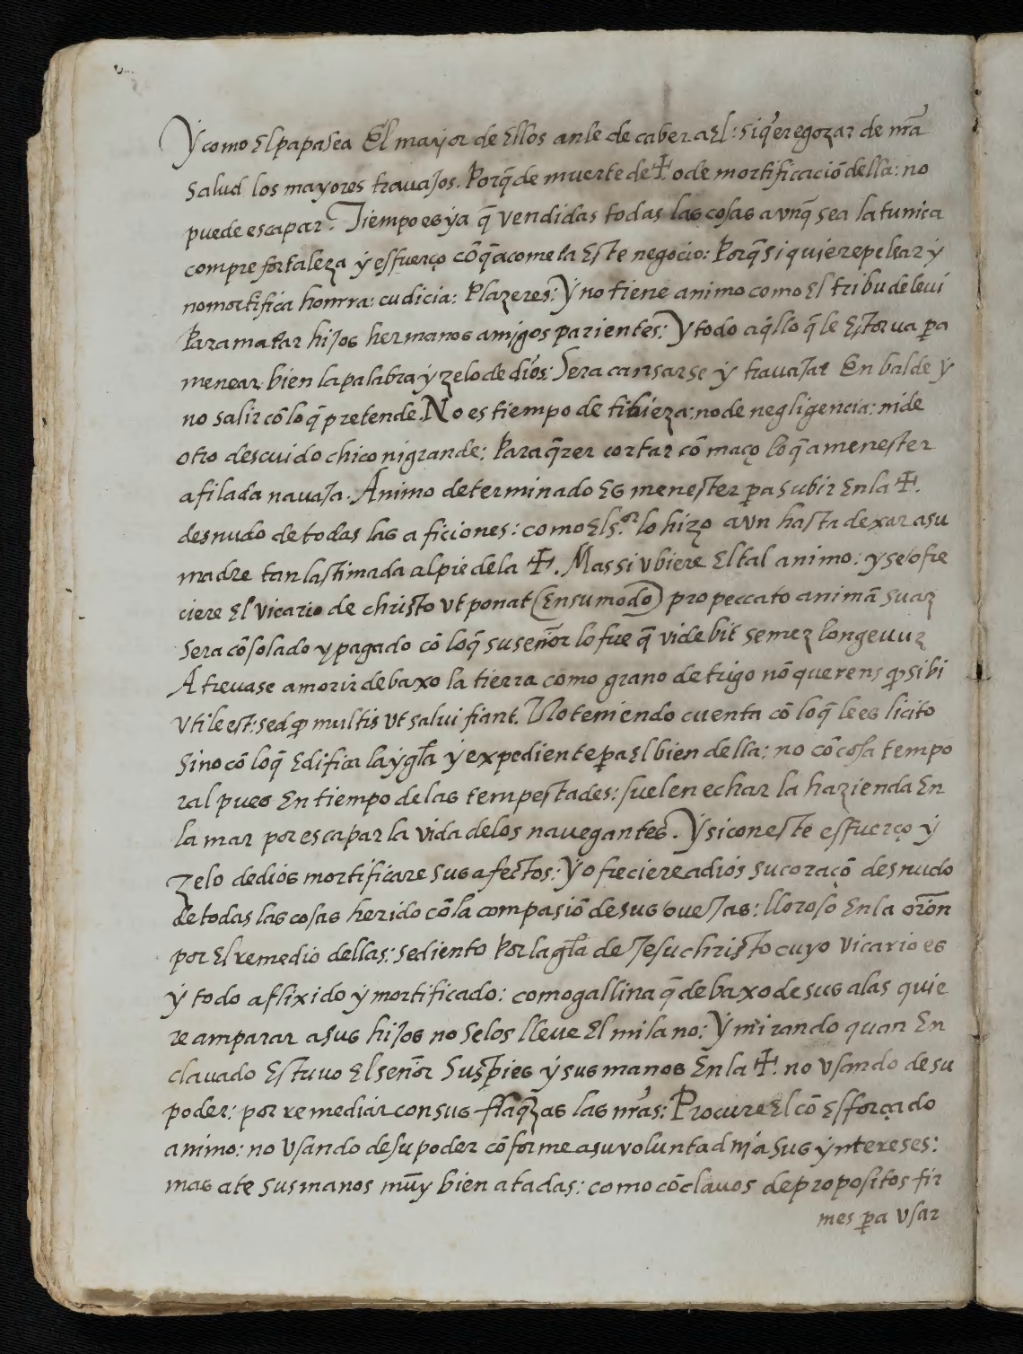 Y como El papa sea El mayor de Ellos anle de caber a El: si q̃ere gozar de nr̃a
salud los mayores travajos. Porq̃ de muerte de ✠ o de mortificaciõ della: no
puede escapar. Tiempo es ya q̃ vendidas todas las cosas avnq̃ sea la tunica
compre fortaleza y esfuerço cõ q̃ acometa Este negocio: Porq̃ si quiere pelear y
no mortifica honrra: cudicia: Plazeres: Y no tiene animo como El tribu de levi
Para matar hijos hermanos amigos parientes: Y todo aq̃llo q̃ le Estorva p̱a
menear bien la palabra y zelo de dios: Sera cansarse y travajar En balde y
no salir cõ lo q̃ pretende. No es tiempo de tibieza: no de negligencia: ni de
otro descuido chico ni grande: Para q̃rer cortar cõ maço lo q̃ a menester
afilada navaja. Animo determinado Es menester p̱a subir En la ✠.
desnudo de todas las aficiones: como El s.ᵒʳ lo hizo avn hasta dexar a su
madre tan lastimada al pie de la ✠. Mas si vbiere El tal animo: y se ofre
ciere El vicario de christo vt ponat (En su modo) pro peccato animã suaz
Sera cõsolado y pagado cõ lo q̃ su señor lo fue q̃ videbit semez longevuz
Atrevase a morir debaxo la tierra como grano de trigo nõ querens q̱ sibi
vtile est: sed q̱ multis vt salui fiant. No teniendo cuenta cõ lo q̃ le es licito
Sino cõ lo q̃ Edifica la ygl̃a y expediente p̱a El bien della: no cõ cosa tempo
ral pues En tiempo de las tempestades: suelen echar la hazienda En
la mar por escapar la vida de los navegantes. Y si con este esfuerço y
zelo de dios mortificare sus afectos: Y ofreciere a dios su coraçõ desnudo
de todas las cosas herido cõ la compasiõ de sus ovejas: lloroso En la or̃on
por El remedio dellas: sediento Por la gl̃a de Jesu christo cuyo vicario es
y todo aflixido y mortificado: como gallina q̃ debaxo de sus alas quie
re amparar a sus hijos no se los lleve El milano: Y mirando quan En
clavado Estuvo El señor Sus pies y sus manos En la ✠. no vsando de su
poder: por remediar con sus flaq̃zas las nr̃as: Procure El cõ Esforçado
animo: no vsando de su poder cõforme a su voluntad ni a sus yntereses:
mas ate sus manos muy bien atadas: como cõ clavos de propositos fir
mes p̱a vsar